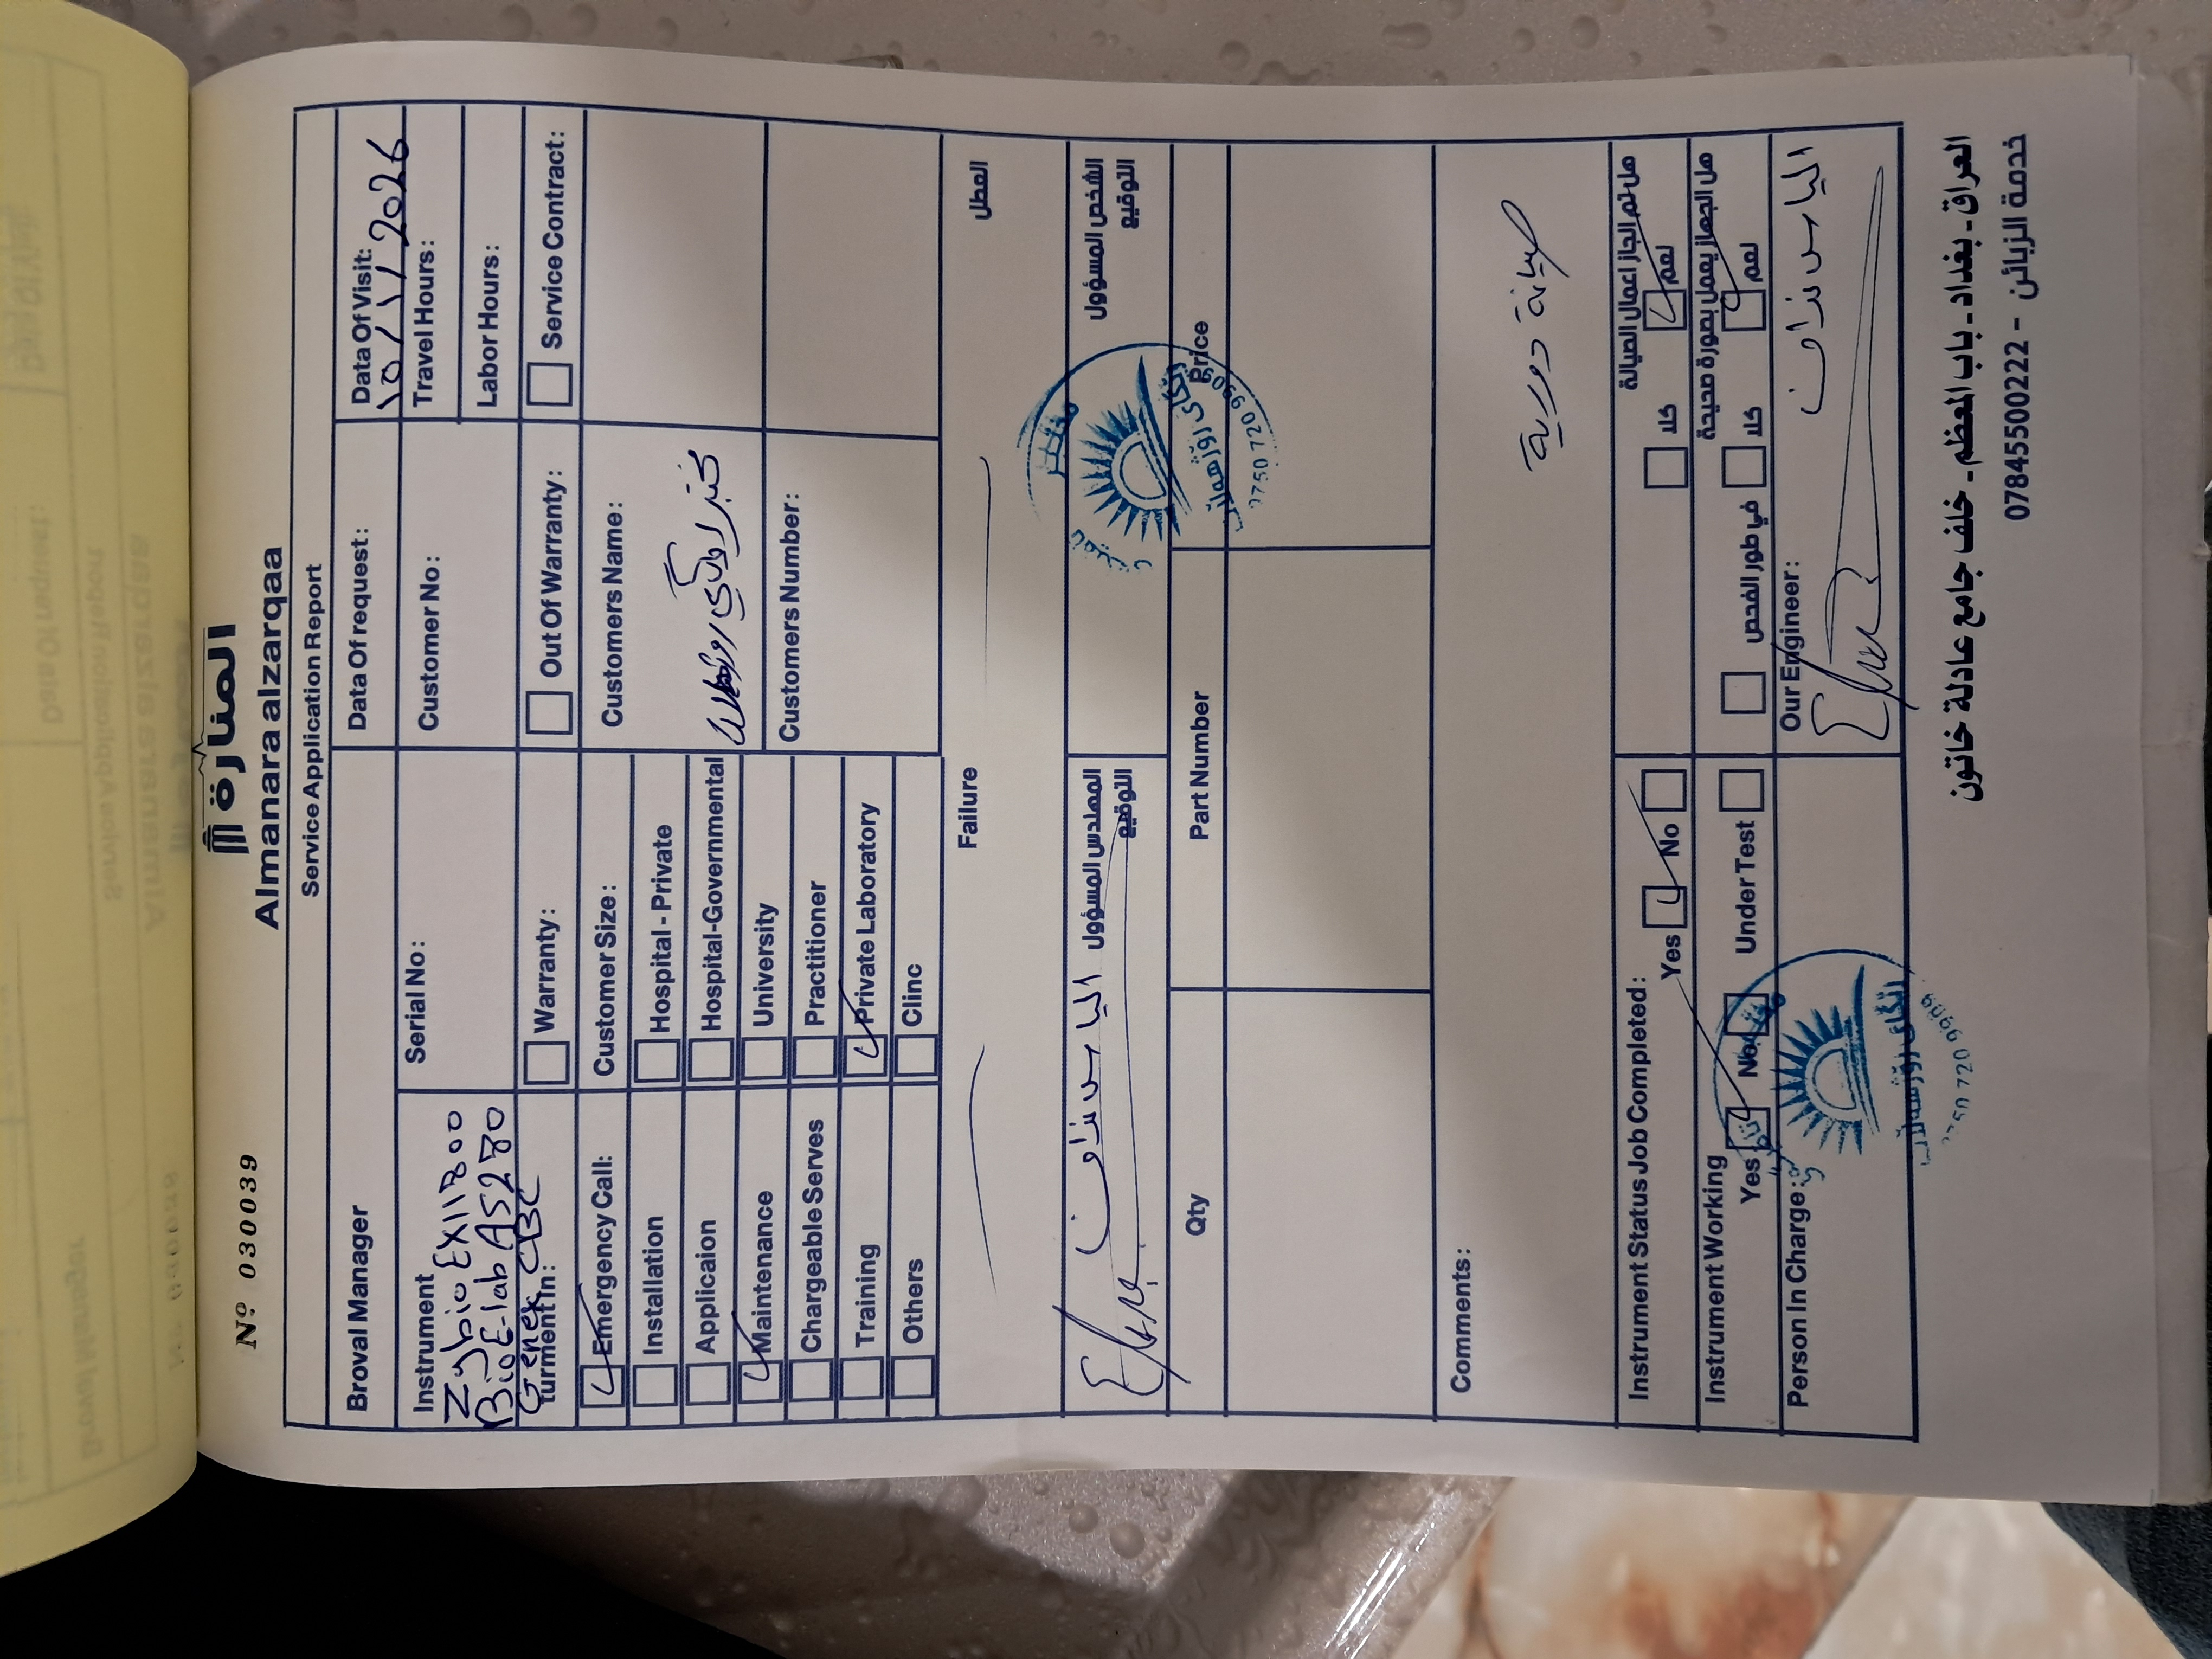 Nº 030039
المنارة
Almanara alzarqaa
Service Application Report
Broval Manager
Data Of request:
Data Of Visit:
10/1/2026
Instrument
Zybio EX11800
BioE-lab AS280
Genex CBC
turment In:
Serial No:
Customer No:
Travel Hours:
Labor Hours:
Warranty:
Out Of Warranty:
Service Contract:
Emergency Call:
Installation
Applicaion
Maintenance
Chargeable Serves
Training
Others
Customer Size:
Hospital - Private
Hospital-Governmental
University
Practitioner
Private Laboratory
Clinc
Customers Name:
مختبر
Customers Number:
Failure
العطل
المهندس المسؤول
التوقيع
الشخص المسؤول
التوقيع
0750 720 9909
Qty
Part Number
Price
Comments:
صيانة دورية
Instrument Status Job Completed:
Yes
No
هل تم انجاز اعمال الصيانة
نعم
كلا
Instrument Working
Yes
No
Under Test
هل الجهاز يعمل بصورة صحيحة
نعم
كلا
في طور الفحص
Person In Charge:
0750 720 9909
Our Engineer:
العراق - بغداد - باب المعظم - خلف جامع عادلة خاتون
خدمة الزبائن - 07845500222